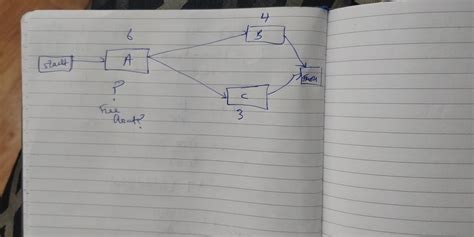 6
4
start
A
B
?
Free
float?
C
3